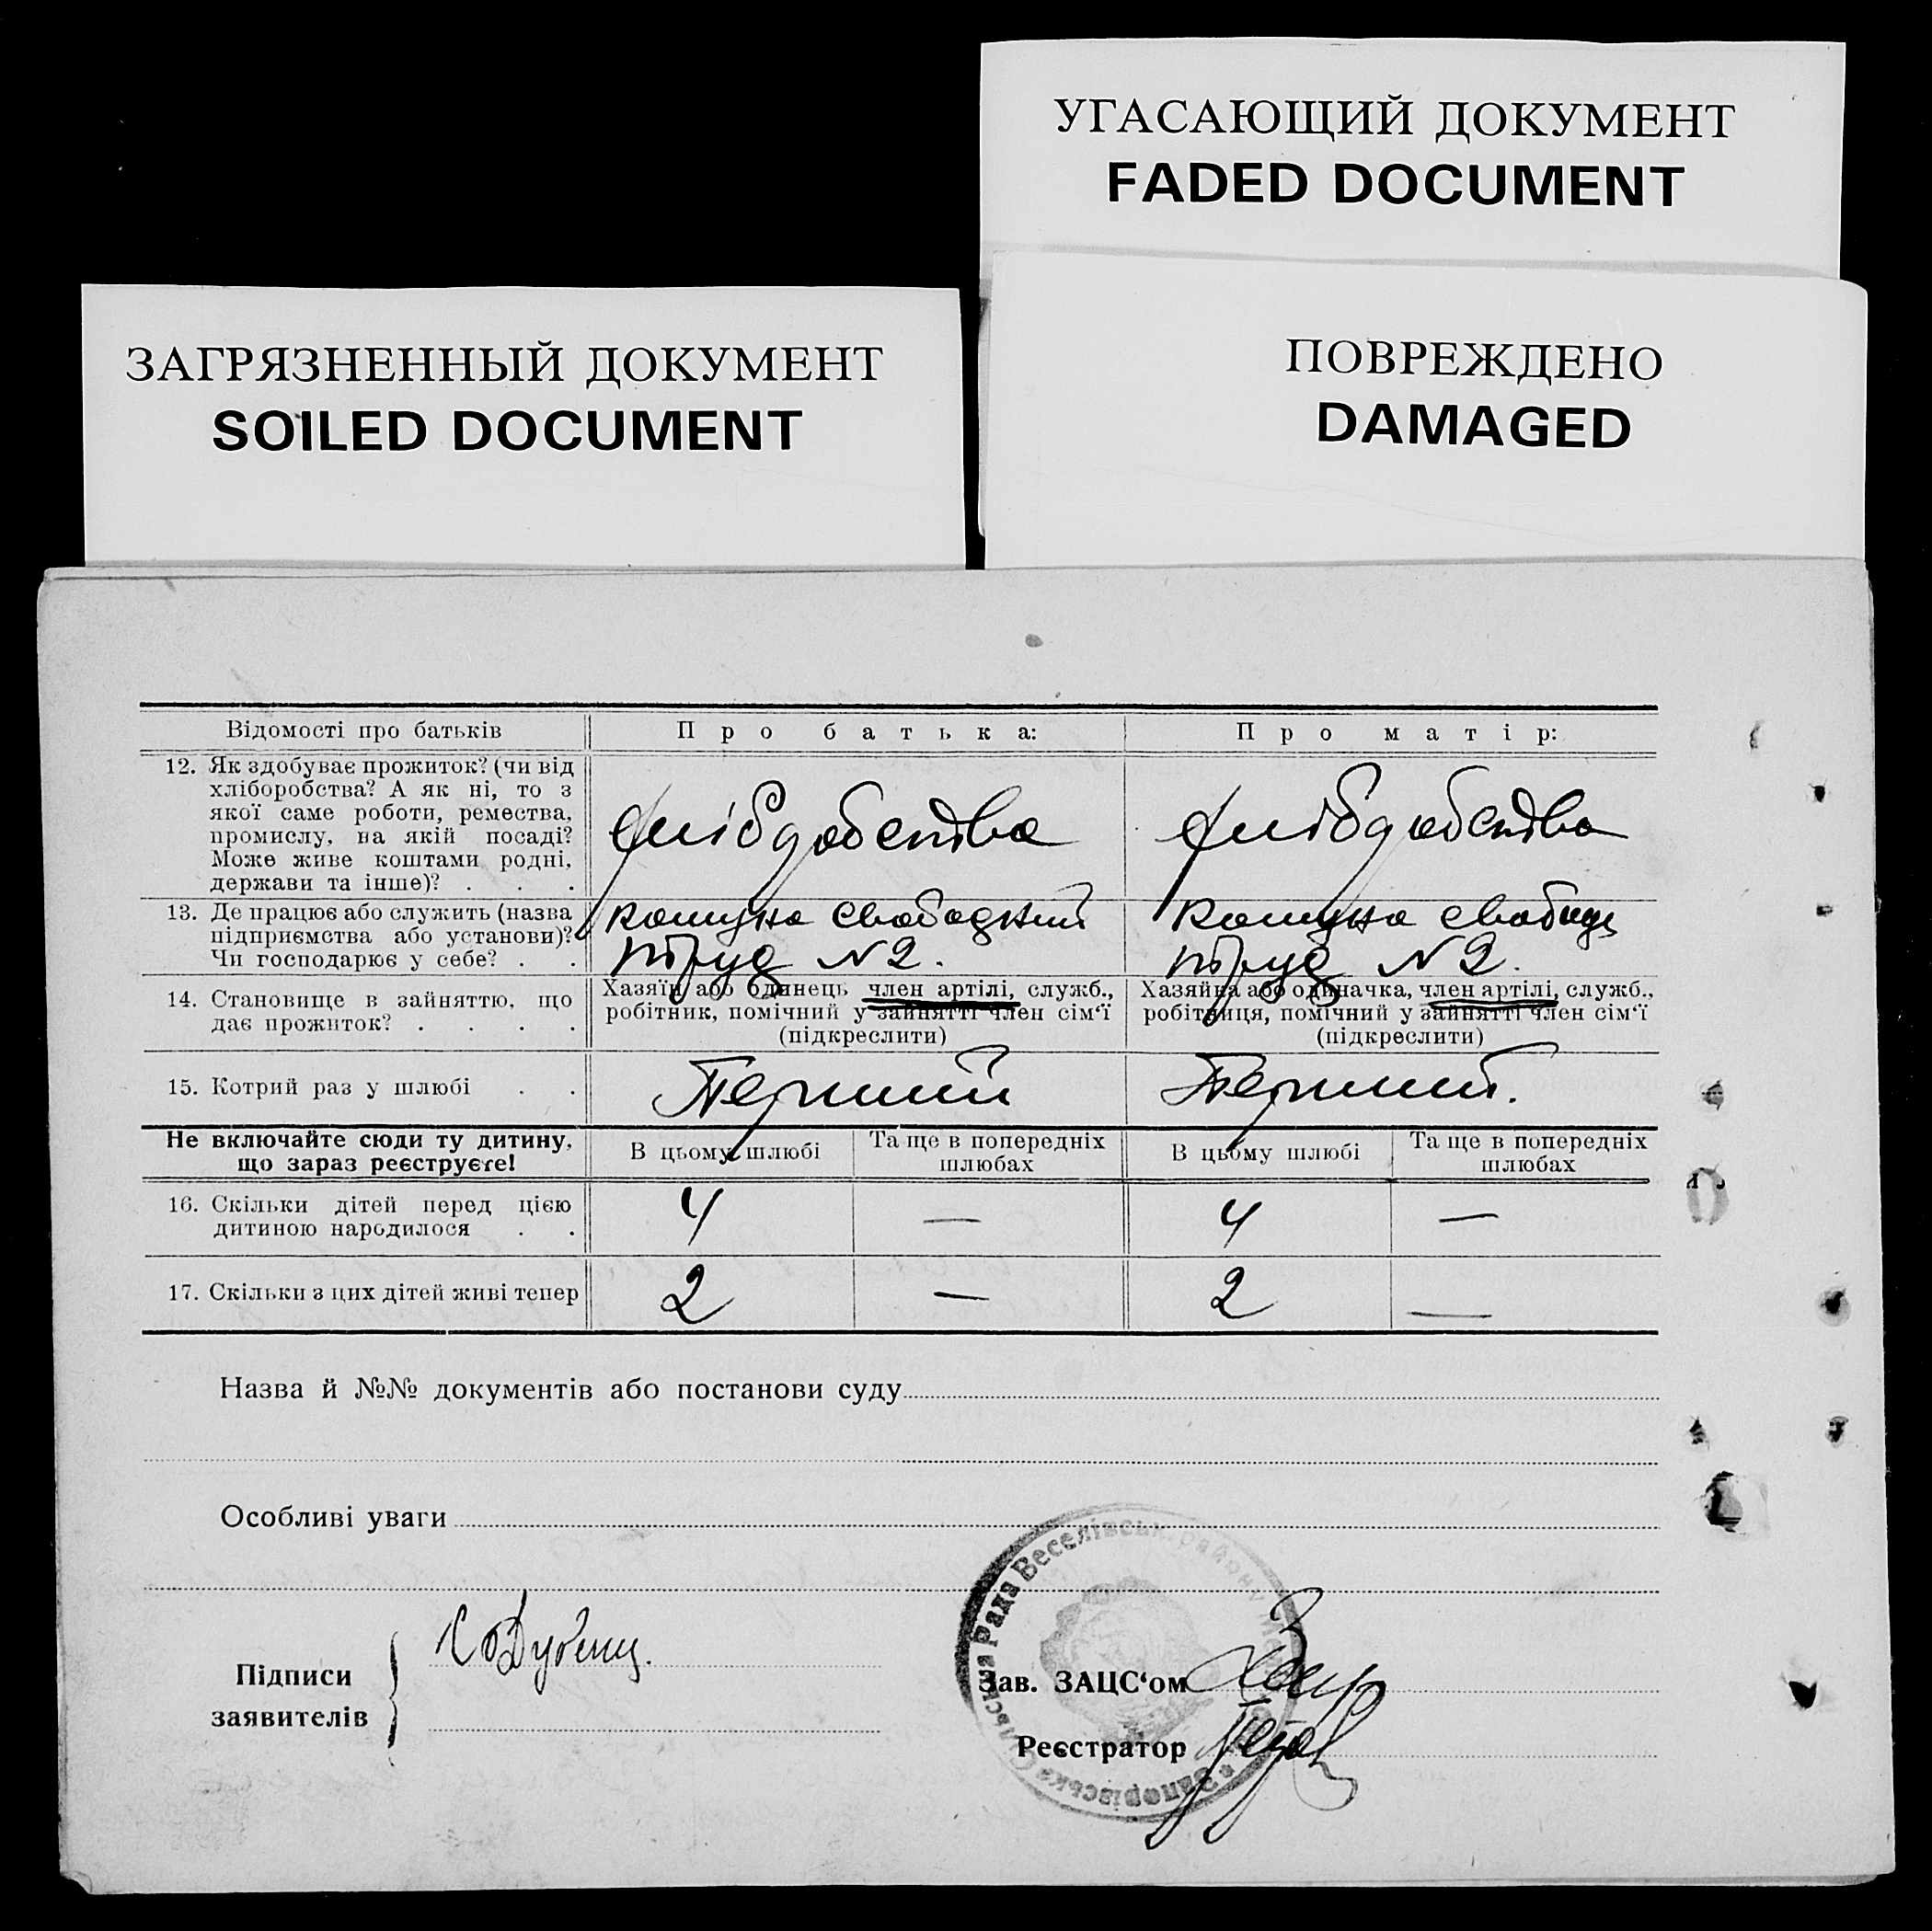 УГАСАЮЩИЙ ДОКУМЕНТ
FADED DOCUMENT
ЗАГРЯЗНЕННЫЙ ДОКУМЕНТ
SOILED DOCUMENT
ПОВРЕЖДЕНО
DAMAGED
Відомості про батьків
Про батька:
Про матір:
12. Як здобуває прожиток? (чи від
хліборобства? А як ні, то з
якої саме роботи, ремества,
промислу, на якій посаді?
Може живе коштами родні,
держави та інше)? . . .
13. Де працює або служить (назва
підприємства або установи)?
Чи господарює у себе? . .
комуна
труд №2.
комуна
труд №2.
14. Становище в зайняттю, що
дає прожиток? . . . .
Хазяїн або одинець член артілі, служб.,
робітник, помічний у зайнятті член сім‘ї
(підкреслити)
Хазяйка або одиначка, член артілі, служб.,
робітниця, помічний у зайнятті член сім‘ї
(підкреслити)
15. Котрий раз у шлюбі . .
Перший
Перший.
Не включайте сюди ту дитину,
що зараз реєструєте!
В цьому шлюбі
Та ще в попередніх
шлюбах
В цьому шлюбі
Та ще в попередніх
шлюбах
16. Скільки дітей перед цією
дитиною народилося . .
4
—
4
—
17. Скільки з цих дітей живі тепер
2
—
2
—
Назва й №№ документів або постанови суду
Особливі уваги
Підписи
заявителів
Рада Веселівськ. району
Зав. ЗАЦС‘ом
Реєстратор